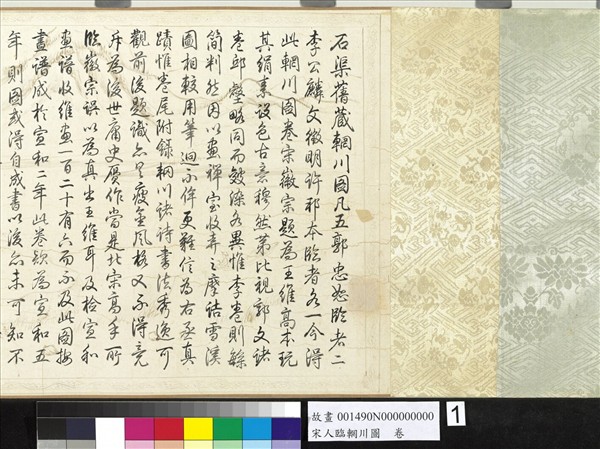 石渠舊藏輞川圖凡五郭忠恕臨者二
李公麟文徵明許祁本臨者各一今得
此輞川圖卷宋徽宗題為王維高本玩
其絹素設色古意穆然第此視郭文諸
卷邱壑略同而皴染各異惟李卷則繇
簡判然因以畫禪室收弆之摩詰雪溪
圖相較用筆迥不侔更難信為右丞真
蹟惟卷尾附錄輞川諸詩書法秀逸可
觀前後題識亦具瘦金風格又不得竟
斥為後世庸史贋作當是北宋高手所
臨徽宗誤以為真出王維耳及檢宣和
畫譜收維畫一百二十有六而不及此圖按
畫譜成於宣和二年此卷欵為宣和五
年則圖或得自成書以後亦未可知不
故畫 001490N000000000
宋人臨輞川圖 卷
1